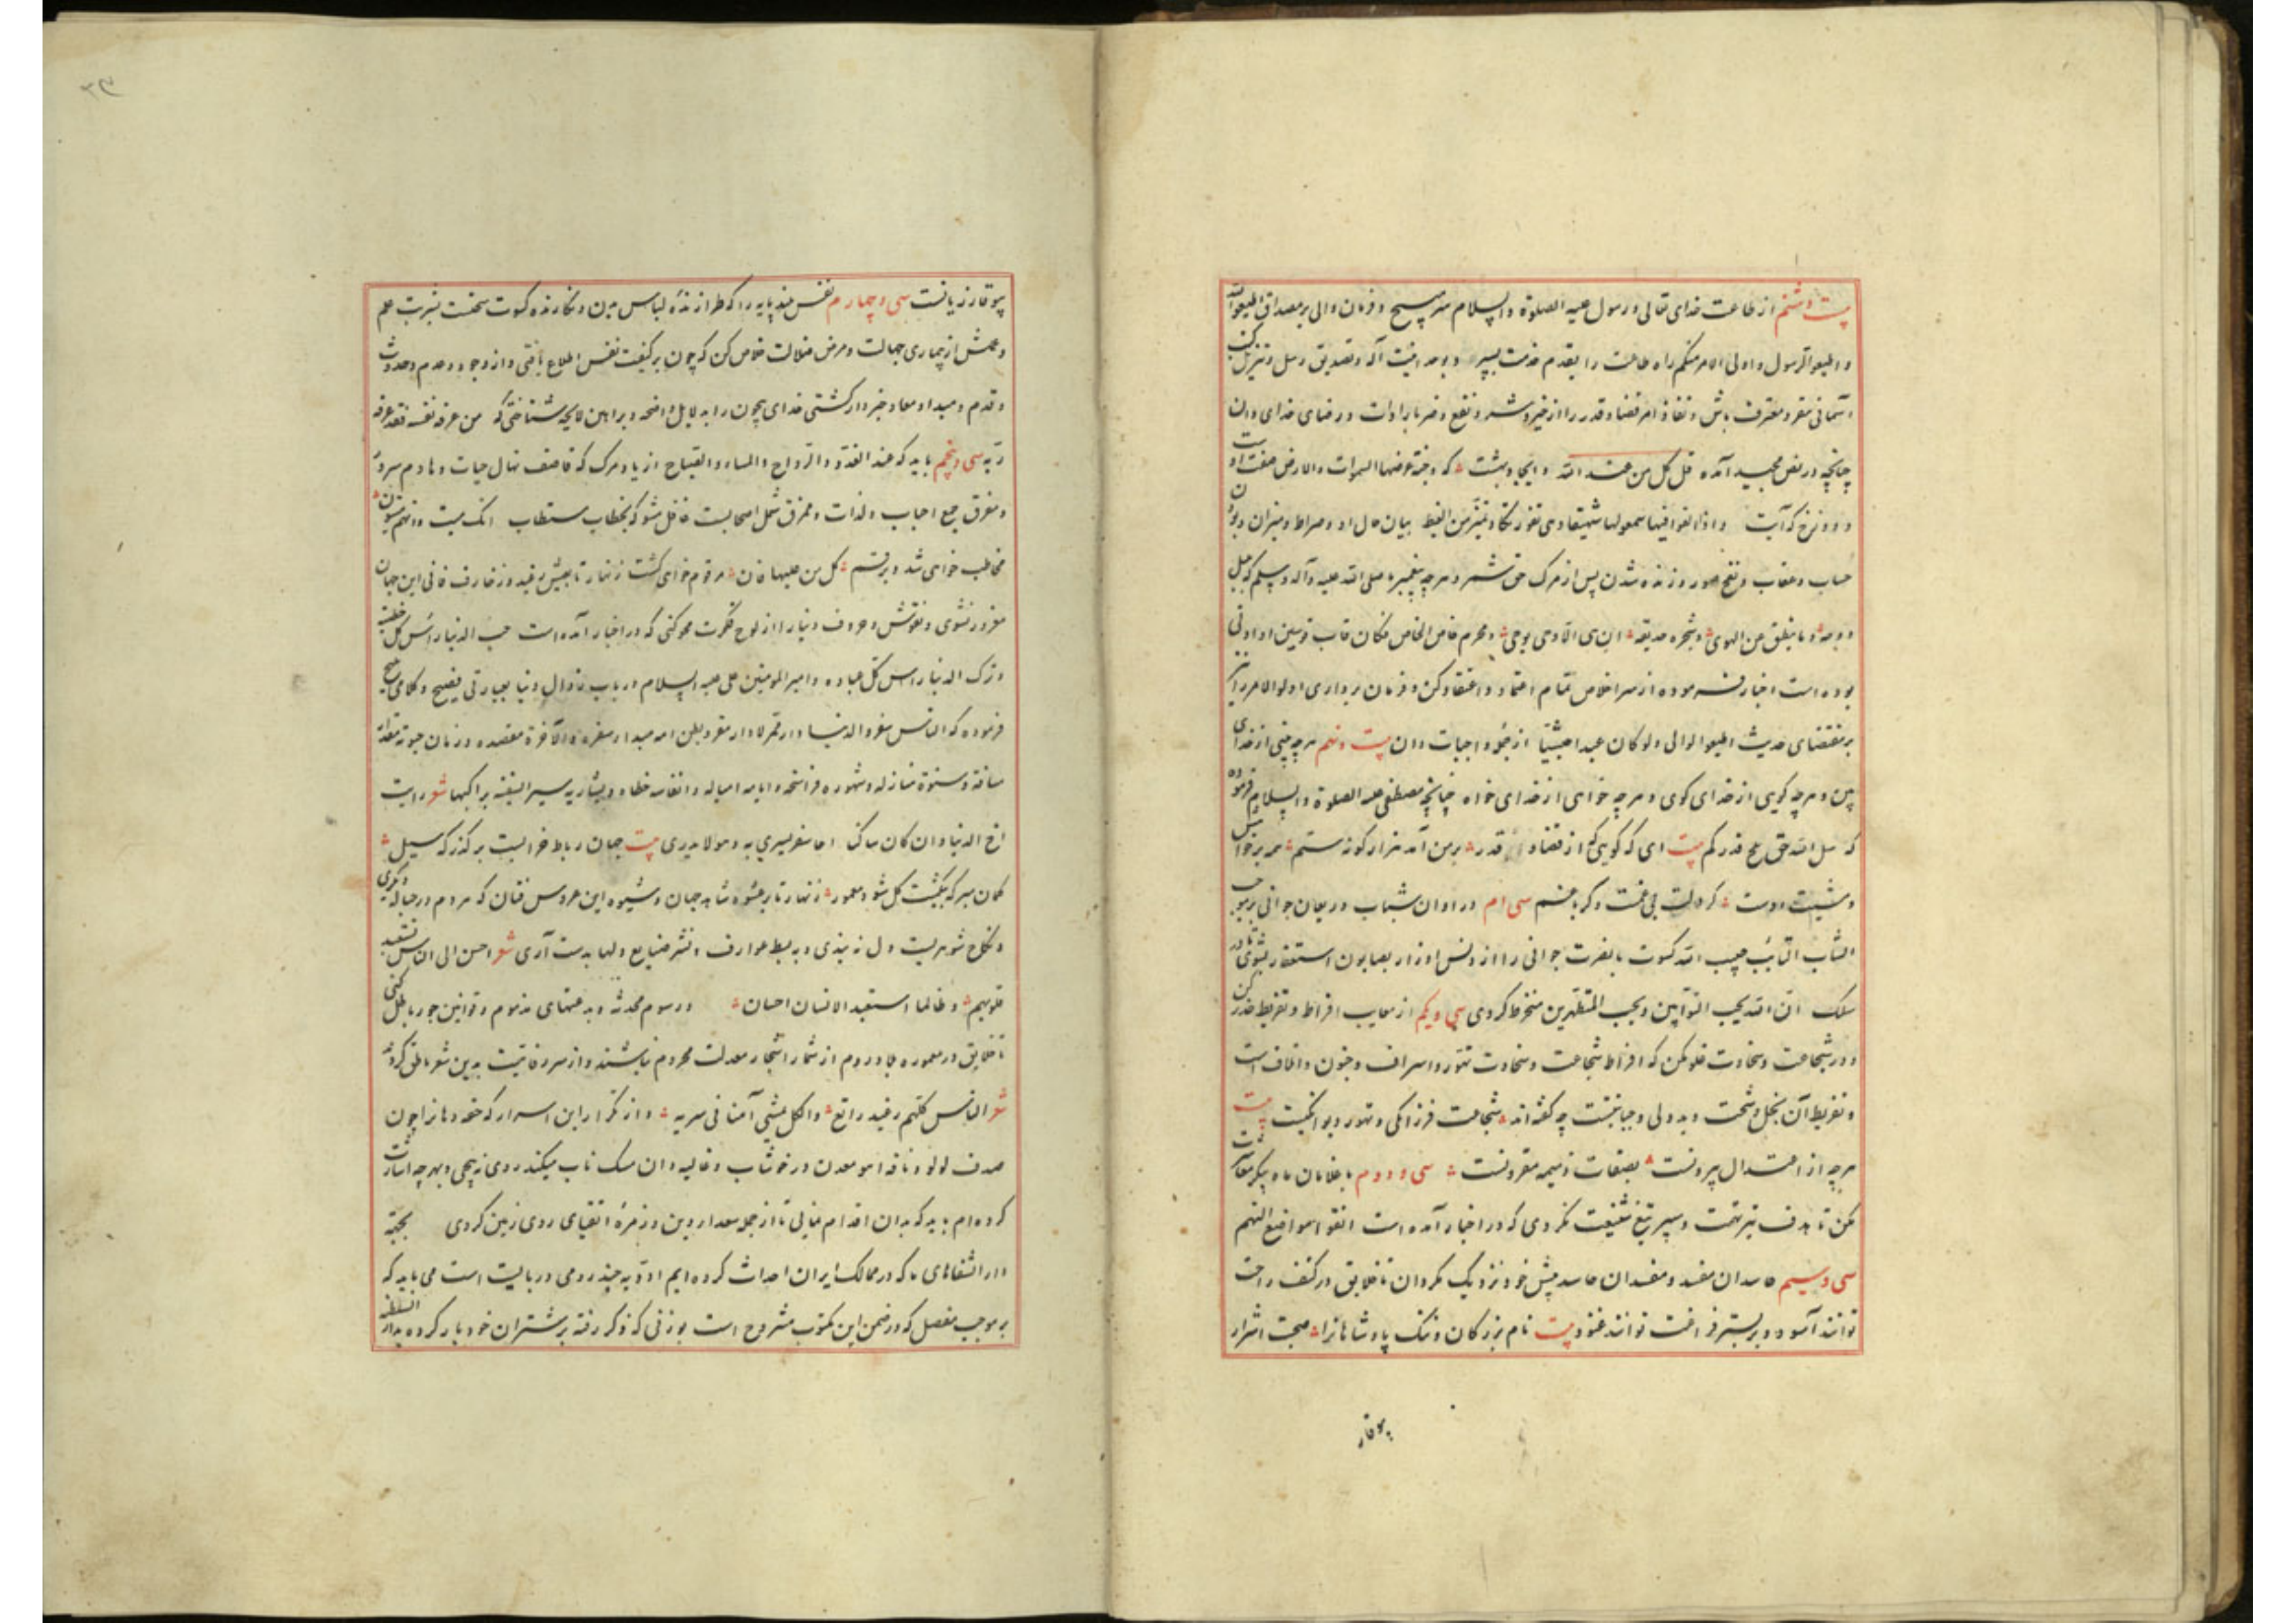 بیست و هشتم از طاعت خدای تعالی و رسول علیه الصلوة والسلام سر مپیچ و فرمان والی بر مصداق اطیعوا الله
و اطیعوا الرسول و اولی الامر منکم راه طاعت را بقدم خدمت بسپر و بوحدانیت آله و تصدیق رسل و تنزیل کتب
آسمانی مقر و معترف باش و نفاذ امر قضا و قدر را از خیر و شر و نفع و ضر بارادات و رضای خدای دان
چنانچه در نص مجید آمده قل کل من عند الله و ایجاد بهشت که و جنة عرضها السموات والارض صفت اوست
و دوزخ که آیت و اذا القوا فیها سمعوا لها شهیقا و هی تفور تکاد تمیز من الغیظ بیان حال او و صراط و میزان و بودن
حساب و عقاب و نفخ صور و زنده شدن پس از مرک حق شمر و هر چه پیغمبر صلی الله علیه و آله وسلم که
دوحه و ما ینطق عن الهوی و شجره حدیقه ان هی الا وحی یوحی و محرم خاص الخاص مکان قاب قوسین او ادنی
بوده است اخبار فرموده از سر اخلاص تمام اعتماد و اعتقاد کن و فرمان برداری اولوا الامر را
بر مقتضای حدیث اطیعوا الوالی ولو کان عبدا حبشیا از جمله واجبات دان بیست و نهم هر چه بینی از خدای
بین و هر چه کویی از خدای کوی و هر چه خواهی از خدای خواه چنانچه مصطفی علیه الصلوة والسلام فرموده
که سل الله حتی ملح قدرکم بیت ای که کویی که از قضا و قدر بر من آمد هزار کونه ستم همه بر خواست
و مشیت اوست کر دلت بی غمست و کر با غم سی ام در اوان شباب و ریعان جوانی بر موجب
الشاب التائب حبیب الله کسوت با نضرت جوانی را از دنس اوزار بصابون استغفار بشوی تا در
سلک ان الله یحب التوابین و یحب المتطهرین منخرط کردی سی و یکم از معایب افراط و تفریط حذر کن
و در شجاعت و سخاوت غلو مکن که افراط شجاعت و سخاوت تهور و اسراف و جنون و اتلاف است
و تفریط آن بخل و شحت و بد دلی و جبانتست چه کفته اند شجاعت فرزانکی و تهور دیوانکیست بیت
هر چه از اعتدال بیرونست بصفات ذمیمه مقرونست سی و دوم با غلامان ماه پیکر
مکن تا هدف تیر تهمت و سپر تیغ شنیعت نکردی که در اخبار آمده است اتقوا مواضع التهم
سی و سیم حاسدان مفسد و مفسدان حاسد پیش خود نزدیک مکردان تا خلایق در کنف راحت
توانند آسود و بر بستر فراغت توانند غنود بیت نام بزرکان و ننک پادشاهانرا صحبت اشرار
بوقار
بیوقار زیانست سی و چهارم نفس بلند پایه را که طرازنده لباس دین و نکارنده کسوت سخنست بشربت علم
و عمل از بیماری جهالت و مرض ضلالت خلاص کن که چون بر کیفیت نفس اطلاع یافتی و از وجود و عدم و حدوث
و قدم و مبدا و معاد خبردار کشتی خدای بیچون را به دلایل واضحه و براهین لایحه شناختی که من عرف نفسه فقد عرف
ربه سی و پنجم باید که عند الغدو و الرواح و المساء و الصباح از یاد مرک که قاصف نهال حیات و هادم سرور
و مفرق جمع احباب و لذات و ممزق شمل اصحابست غافل مشو که بخطاب مستطاب انک میت و انهم میتون
مخاطب خواهی شد و برقم کل من علیها فان مرقوم خواهی کشت زنهار تا بعیش رغید و زخارف فانی این جهان
مغرور نشوی و نقوش و حروف دنیا را از لوح فکرت محو کنی که در اخبار آمده است حب الدنیا رأس کل خطیئة
و ترک الدنیا راس کل عبادة و امیر المومنین علی علیه السلام در باب زوال دنیا بعبارتی فصیح و کلامی
فرموده که الناس سفر والدنیا دار ممر لا دار مقر و بطن امه مبداء سفره والآخرة مقصده و زمان حیوته مقدار
مسافته و سنوه منازله و شهوره فراسخه و ایامه امیاله و انفاسه خطاه و یسار به سیر السفینة براکبها شعر رایت
اخ الدنیا و ان کان ساکنا اخا سفر یسری به و هو لا یدری بیت جهان رباط خرابیست بر کذرکه سیل
کمان مبر که بیکمشت کل شود معمور زنهار تا بر عشوه شاهد جهان و شیوه این عروس فتان که هر دم در حباله دیکری
و نکاح شوهریست دل نه بندی و به بسط عوارف و نشر صنایع دلها بدست آری شعر احسن الی الناس تستعبد
قلوبهم و طالما استعبد الانسان احسان و رسوم محدثه و بدعتهای مذموم و قوانین جور باطل کنی
تا خلایق در معموره بلاد روم از ثمار اشجار معدلت محروم نباشند و از سر رفاهیت بدین شعر ناطق کردند
شعر الناس کلهم رغید راتع والکل یمشی آمنا فی سربه و از تکرار این اسرار که حقه دهانرا چون
صدف لولو و نافه آهو معدن در خوشاب و غالیه دان مشک ناب میکند روی نه پیچی و بهر چه اشارت
کرده ام باید که بدان اقدام نمایی تا از جمله سعداء دین و زمره اتقیای روی زمین کردی بجهة
دار الشفاهای ما که در ممالک ایران احداث کرده ایم ادویه چند رومی در بایست است می باید که
بر موجب مفصل که در ضمن این مکتوب مشروح است بوزنی که ذکر رفته بر شتران خود بار کرده بدار السلطنه